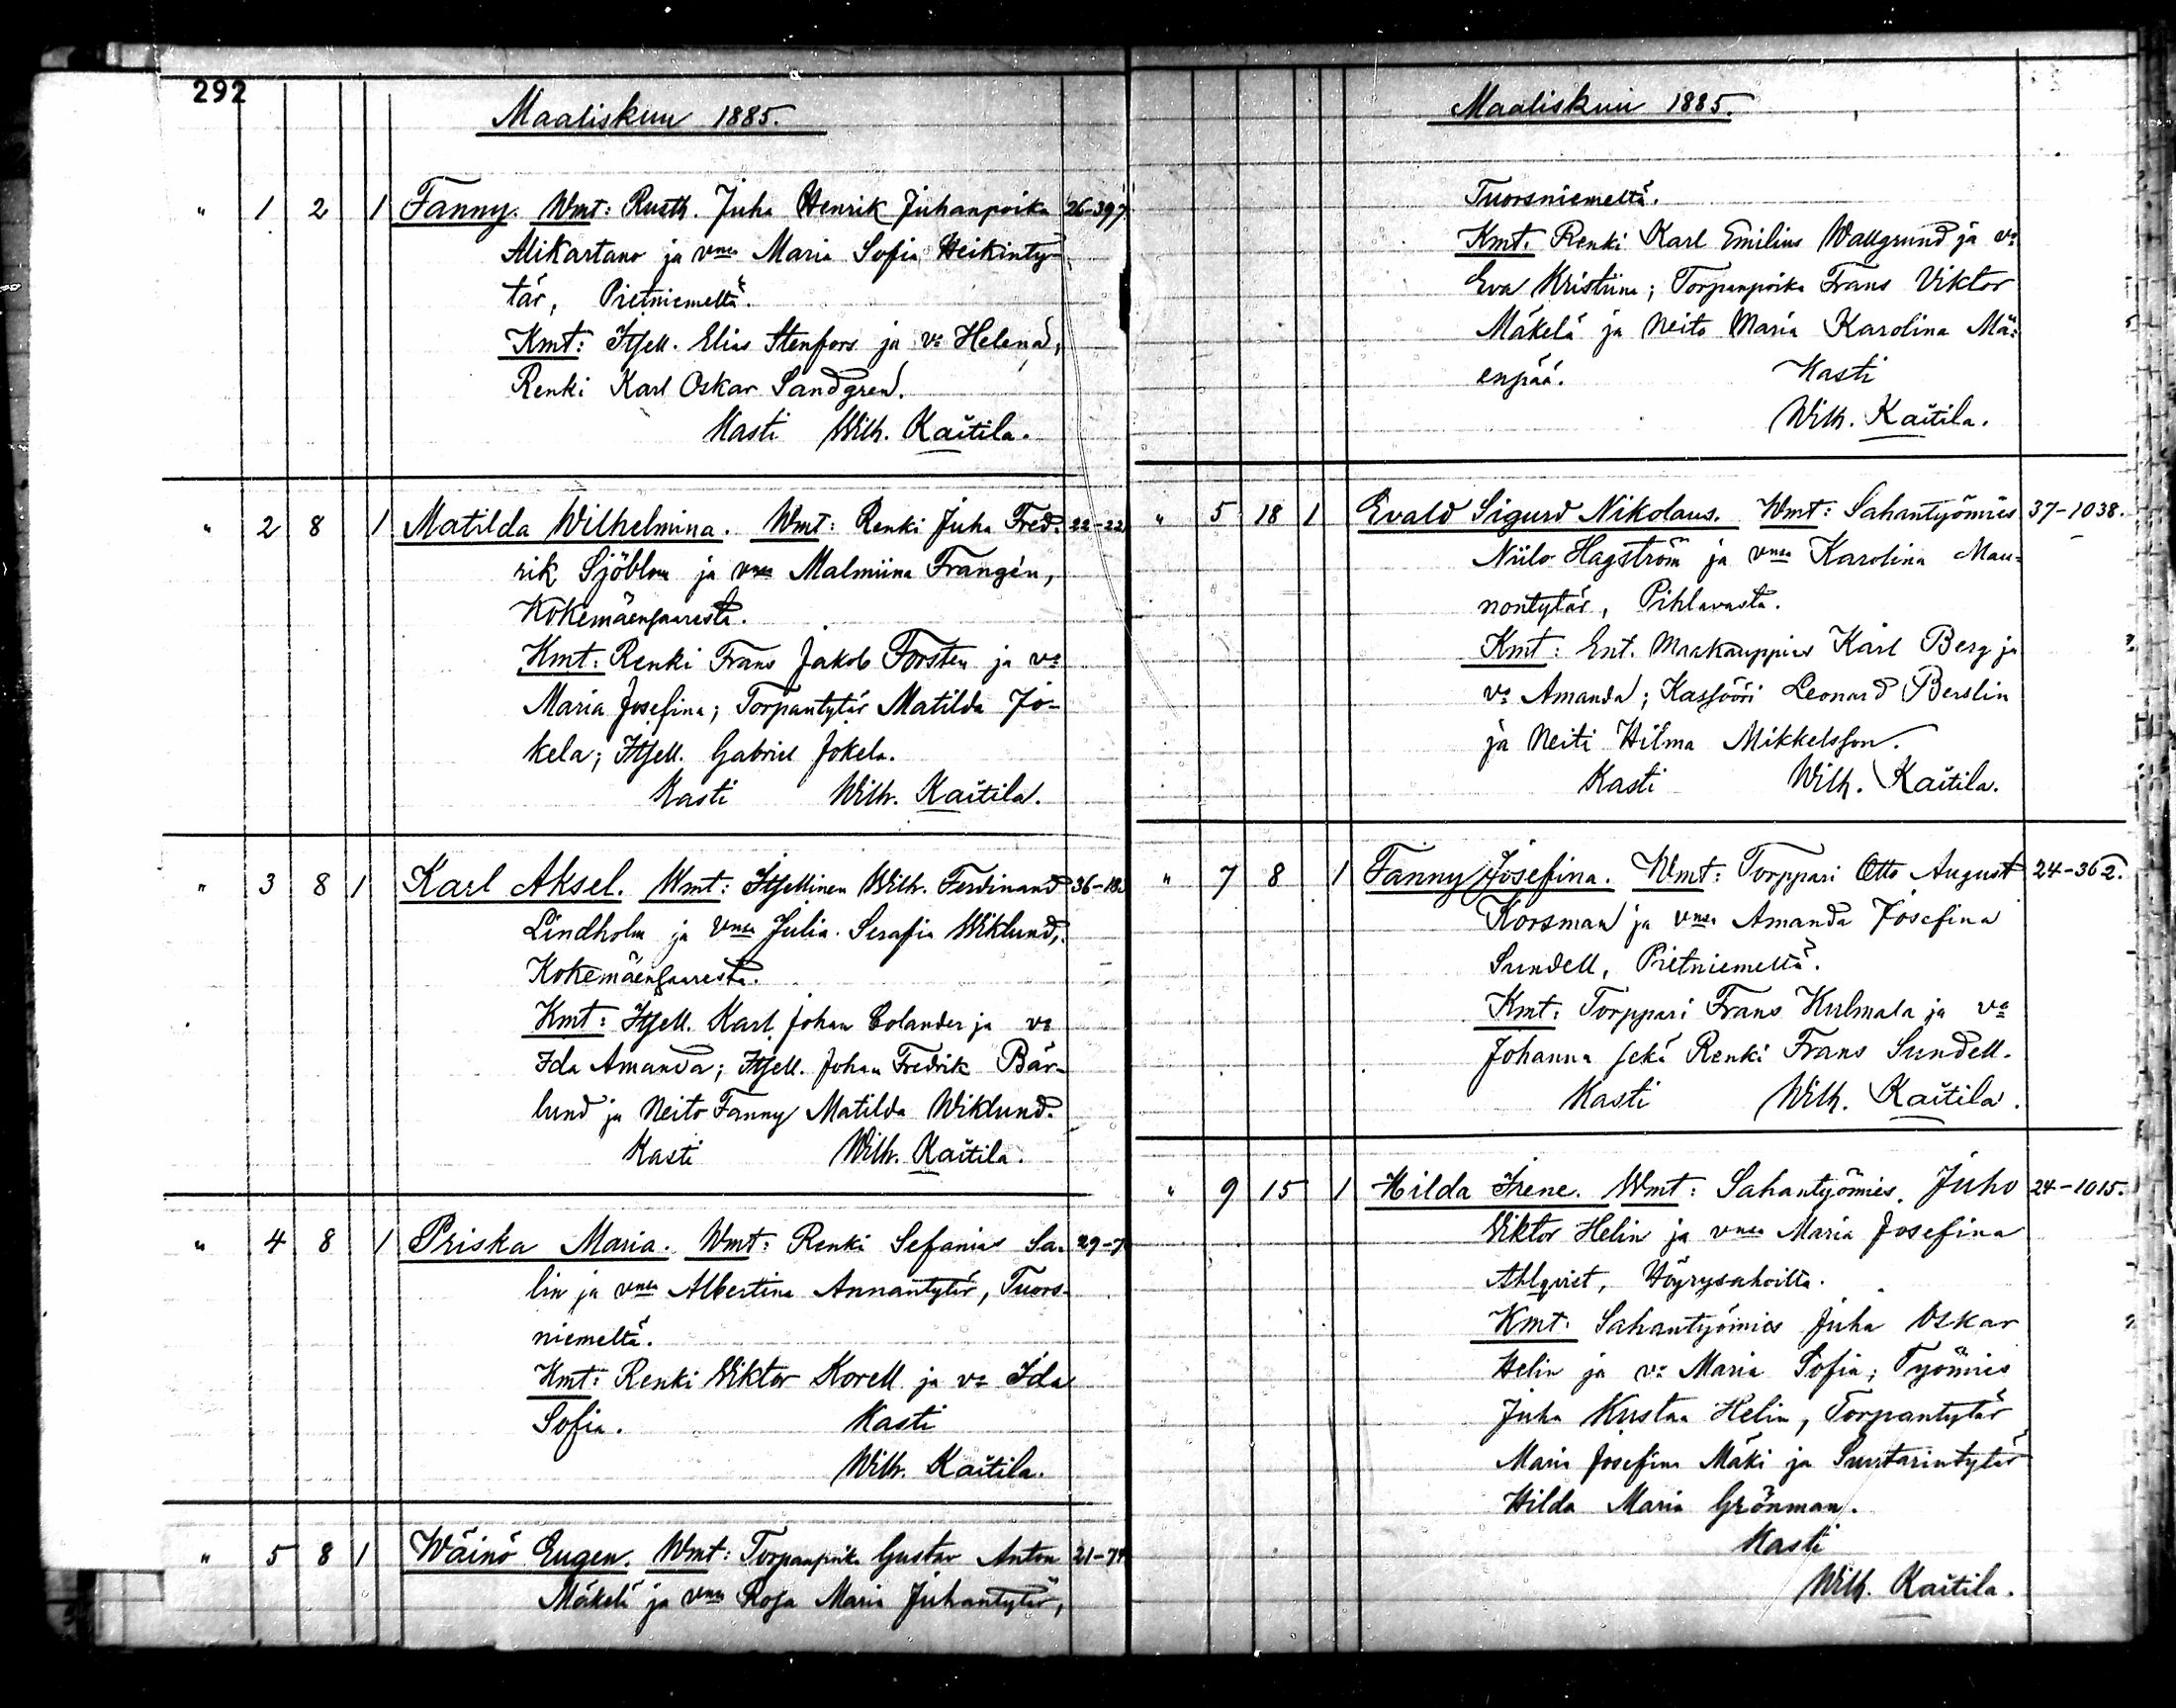 292
Maaliskuu 1885.
" 1 2 1 Fanny. Wmt: Rusth. Juha Henrik Juhanpoika 26-397.
Alikartano ja vmsa Maria Sofia Heikinty-
tär, Pietniemeltä.
Kmt: Itsell. Elias Stenfors ja va Helena,
Renki Karl Oskar Sandgren.
Kasti Wilh. Kaitila.
" 2 8 1 Matilda Wilhelmina. Wmt: Renki Juha Fred- 22-22
rik Sjöblom ja vmsa Malmiina Frangén,
Kokemäensaaresta.
Kmt: Renki Frans Jakob Forsten ja va
Maria Josefina; Torpantytär Matilda Jo-
kela; Itsell. Gabriel Jokela.
Kasti Wilh. Kaitila.
" 3 8 1 Karl Aksel. Wmt: Itsellinen Wilh. Ferdinand 36-18
Lindholm ja vmsa Julia Serafia Wiklund,
Kokemäensaaresta.
Kmt: Itsell. Karl Johan Colander ja va
Ida Amanda; Itsell. Johan Fredrik Bär-
lund ja Neito Fanny Matilda Wiklund.
Kasti Wilh. Kaitila.
" 4 8 1 Priska Maria. Wmt: Renki Sefanias Sa- 29-7
lin ja vmsa Albertina Annantytär, Tuors-
niemeltä.
Kmt: Renki Viktor Korell ja va Ida
Sofia. Kasti
Wilh. Kaitila.
" 5 8 1 Wäinö Eugen. Wmt: Torpanpoika Gustav Anton 21-74
Mäkelä ja vmsa Rosa Maria Juhantytär,
Maaliskuu 1885.
Tuorsniemeltä.
Kmt: Renki Karl Emilius Wallgrund ja va
Eva Kristiina; Torpanpoika Frans Viktor
Mäkelä ja Neito Maria Karolina Mä-
enpää. Kasti
Wilh. Kaitila.
" 5 18 1 Evald Sigurd Nikolaus. Wmt: Sahantyömies 37-1038.
Niilo Hagström ja vmsa Karolina Mau-
nontytär, Pihlavasta.
Kmt: Ent. Maakauppias Karl Berg ja
va Amanda; Kassööri Leonard Berslin
ja Neiti Hilma Mikkelsson.
Kasti Wilh. Kaitila.
" 7 8 1 Fanny Josefina. Wmt: Torppari Otto August 24-362.
Korsman ja vmsa Amanda Josefina
Sundell, Pietniemeltä.
Kmt: Torppari Frans Kulmala ja va
Johanna sekä Renki Frans Sundell.
Kasti Wilh. Kaitila.
" 9 15 1 Hilda Irene. Wmt: Sahantyömies Juho 24-1015.
Viktor Helin ja vmsa Maria Josefina
Ahlqvist, Höyrysahoilta.
Kmt: Sahantyömies Juha Oskar
Helin ja va Maria Sofia; Työmies
Juha Kustaa Helin, Torpantytär
Maria Josefina Mäki ja Suutarintytär
Hilda Maria Grönman.
Kasti
Wilh. Kaitila.